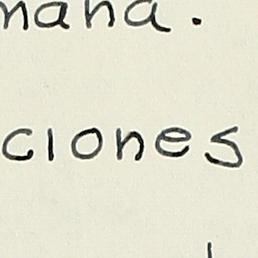 mana.
ciones